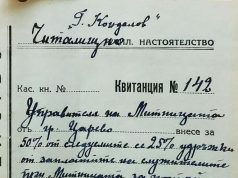 "Г. Кондолов"
Читалищно ал. НАСТОЯТЕЛСТВО
Кас. кн. № Квитанция № 142
Управителя на Митницата
от гр. Царево внесе за
50% от следуемите се 25% удръжки
от заплатите на служителите
при Митницата за